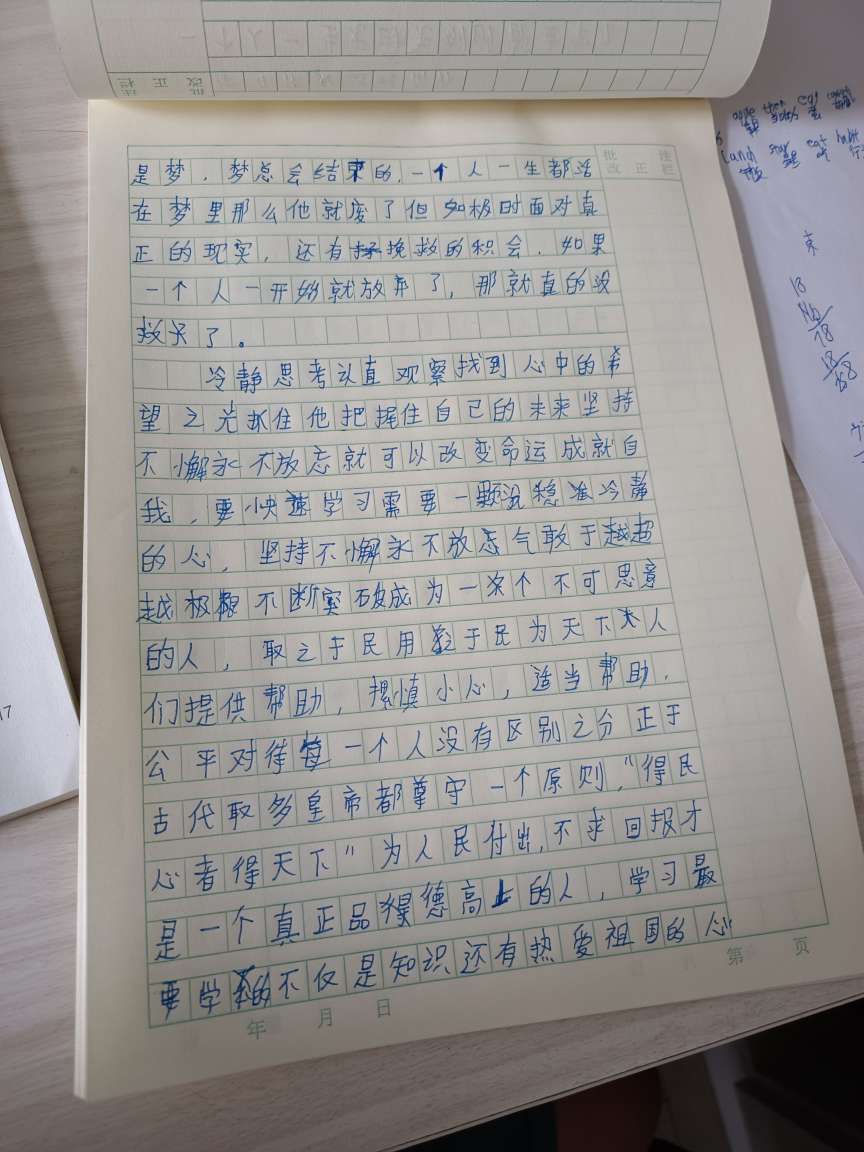 是梦，梦总会结束的，一个人一生都活
在梦里那么他就废了但如极时面对真
正的现实，还有挽救的积会．如果
一个人一开始就放弃了，那就真的没
救了。
冷静思考认真观察找到心中的希
望之光抓住他把握住自己的未来坚持
不懈永不放忘就可以改变命运成就自
我，要快速学习需要一颗沉稳冷静
的心，坚持不懈永不放忘气敢于越超
越极限不断突破成为一个不可思意
的人，取之于民用之于民为天下人
们提供帮助，慎小心，适当帮助．
公平对待每一个人没有区别之分正于
古代取多皇帝都尊守一个原则，“得民
心者得天下”为人民付出,不求回报才
是一个真正品得德高上的人，学习最
要学的不仅是知识还有热爱祖国的心
年 月 日
第 页
批 注
改 正 栏